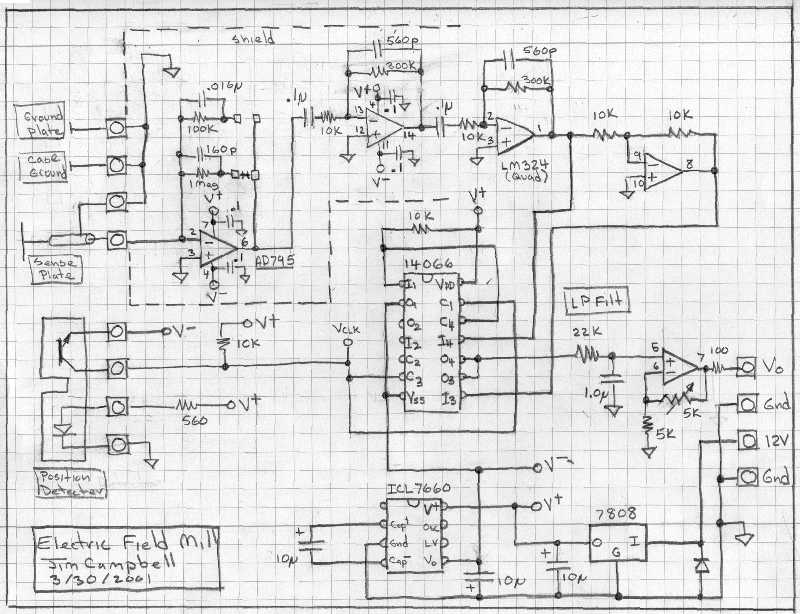 shield
560p
300K
V+
4
.1
.1µ
10K
13
12
14
11
V-
.1
.1µ
10K
560p
300K
2
3
1
LM324
(Quad)
10K
10K
9
10
8
Ground
plate
Case
Ground
Sense
Plate
.016µ
100K
160p
1Meg
V+
7
.1
2
3
6
4
.1
V-
AD795
10K
V+
14066
I1
O1
O2
I2
C2
C3
VSS
VDD
C1
C4
I4
O4
O3
I3
V-
V+
10K
VCLK
560
V+
Position
Detector
LP Filt
22K
1.0µ
5
6
7
100
5K
5K
Vo
Gnd
12V
Gnd
V-
V+
ICL7660
Cap+
Gnd
Cap-
V+
Osc
LV
Vo
+
10µ
+
10µ
+
10µ
7808
O
I
G
Electric Field Mill
Jim Campbell
3/30/2001